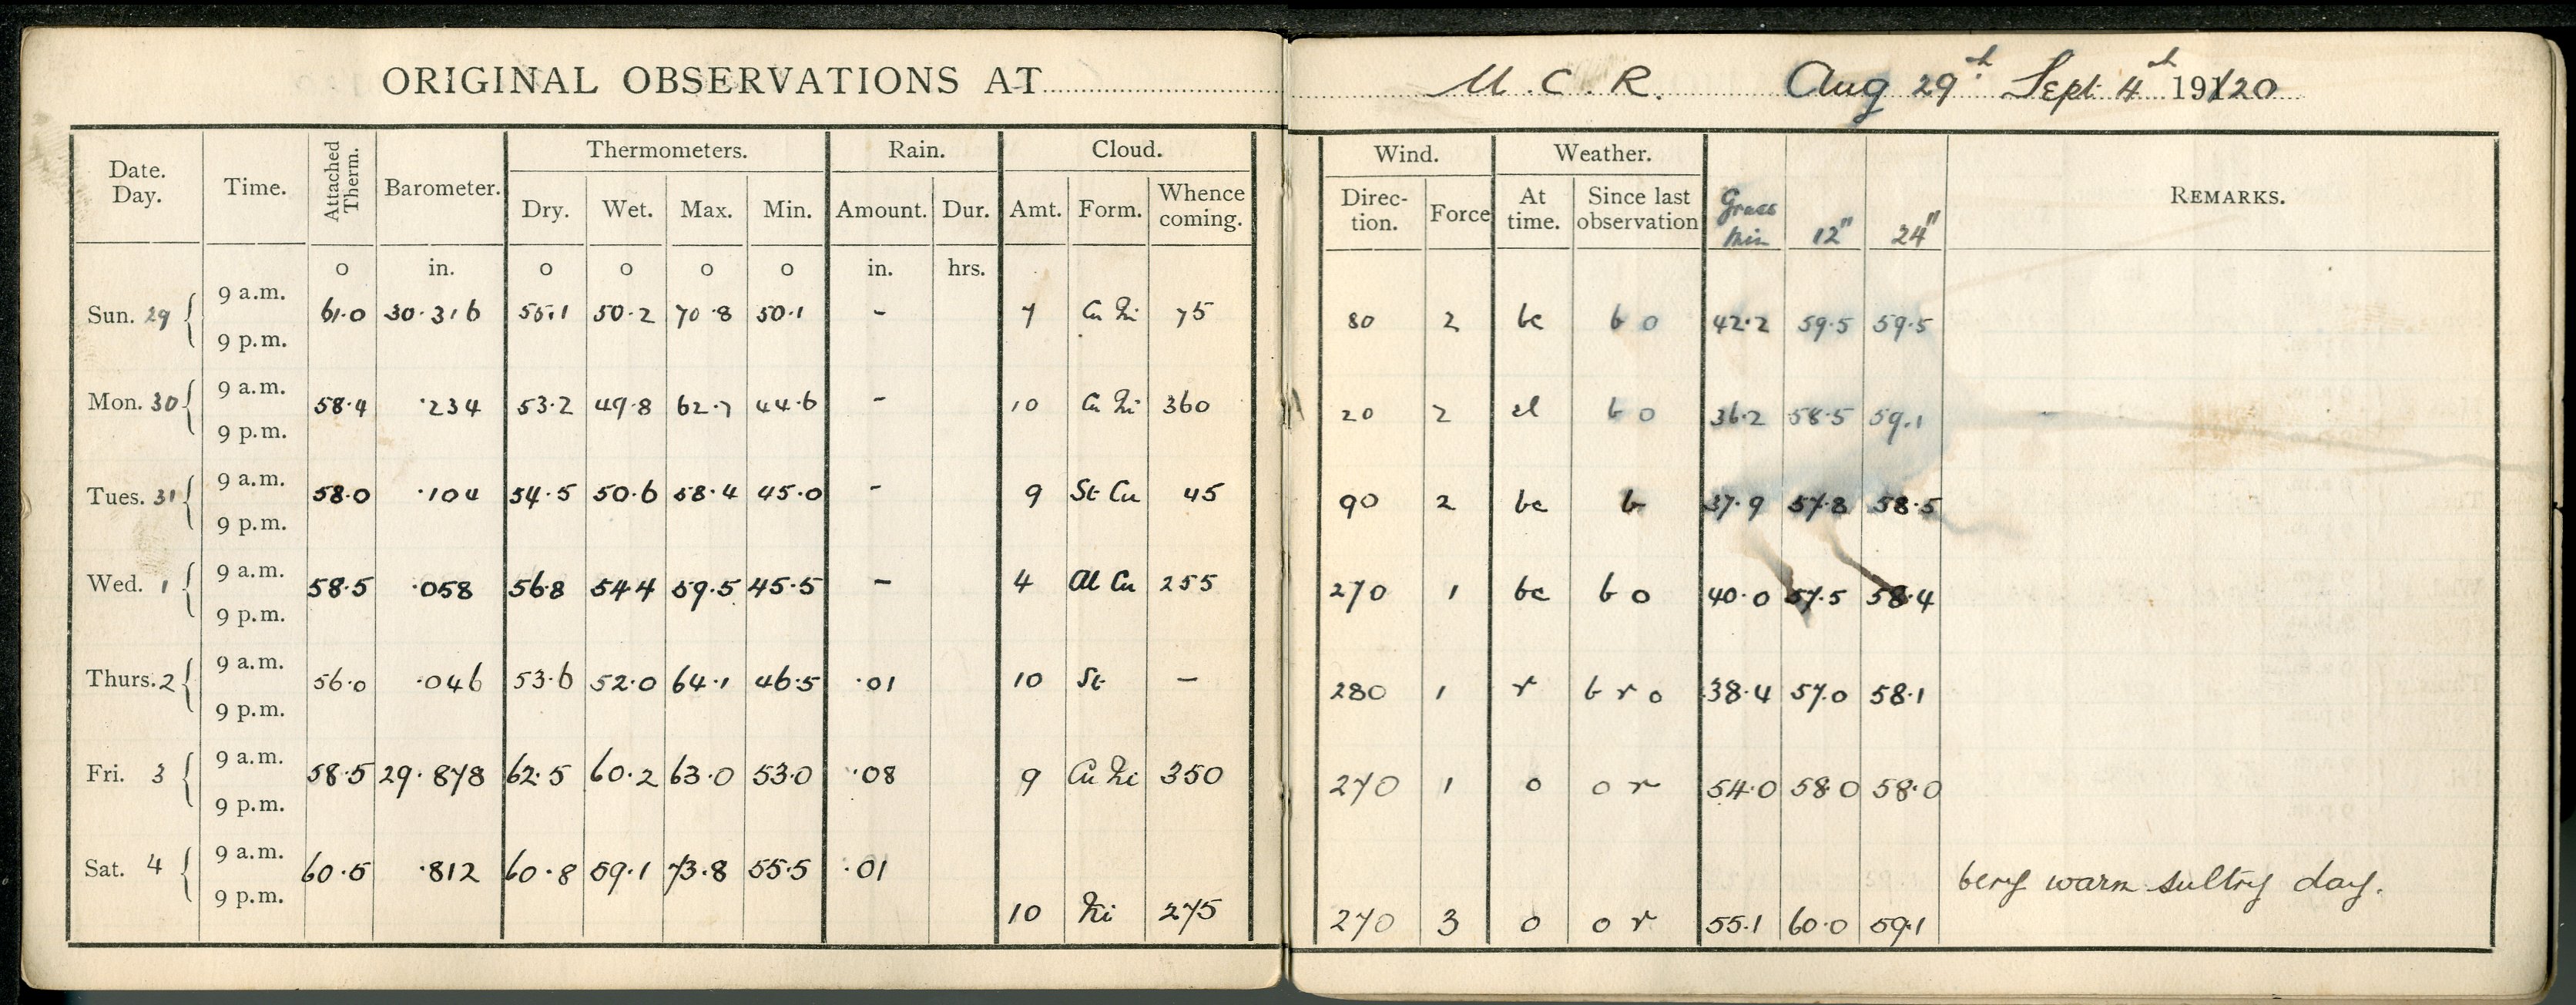 ORIGINAL OBSERVATIONS AT M. C. R. Aug 29th Sept 4th 1920
Date. Day. Time. Attached Therm. Barometer. Thermometers. Rain. Cloud. Wind. Weather. Grass Min 12" 24" REMARKS.
Dry. Wet. Max. Min. Amount. Dur. Amt. Form. Whence coming. Direc- tion. Force At time. Since last observation
o in. o o o o in. hrs.
9 a.m.
Sun. 29 61.0 30.316 55.1 50.2 70.8 50.1 - 7 Cu Ni 75 80 2 bc b o 42.2 59.5 59.5
9 p.m.
9 a.m.
Mon. 30 58.4 .234 53.2 49.8 62.7 44.6 - 10 Cu Ni 360 20 2 b o 36.2 58.5 59.1
9 p.m.
9 a.m.
Tues. 31 58.0 .104 54.5 50.6 58.4 45.0 - 9 St Cu 45 90 2 bc b 37.9 57.8 58.5
9 p.m.
9 a.m.
Wed. 1 58.5 .058 56.8 54.4 59.5 45.5 - 4 Al Cu 255 270 1 bc b o 40.0 57.5 58.4
9 p.m.
9 a.m.
Thurs. 2 56.0 .046 53.6 52.0 64.1 46.5 .01 10 St - 280 1 r b r o 38.4 57.0 58.1
9 p.m.
9 a.m.
Fri. 3 58.5 29.878 62.5 60.2 63.0 53.0 .08 9 Cu Ni 350 270 1 o o r 54.0 58.0 58.0
9 p.m.
9 a.m.
Sat. 4 60.5 .812 60.8 59.1 73.8 55.5 .01 very warm sultry day.
9 p.m. 10 Ni 275 270 3 o o r 55.1 60.0 59.1